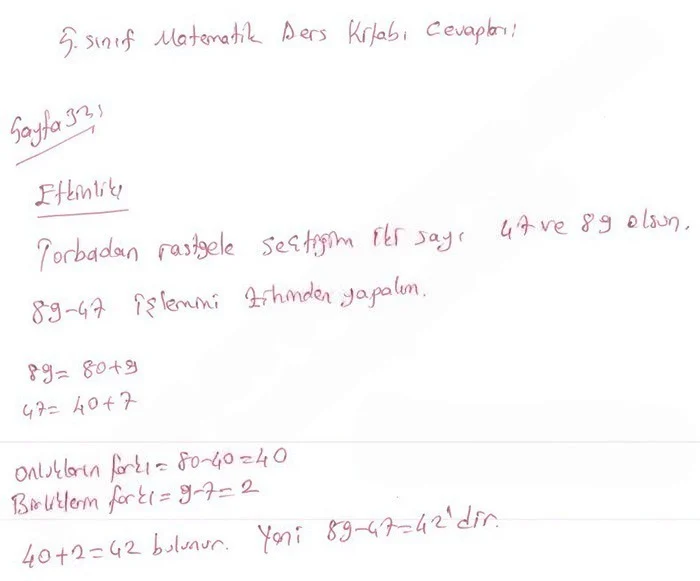 5. sınıf Matematik Ders Kitabı Cevapları:
Sayfa 32:
Etkinlik:
Torbadan rastgele seçtiğim iki sayı 47 ve 89 olsun.
89-47 işlemini zihinden yapalım.
89= 80+9
47= 40+7
Onlukların farkı = 80-40=40
Birliklerin farkı = 9-7=2
40+2=42 bulunur. Yani 89-47=42'dir.